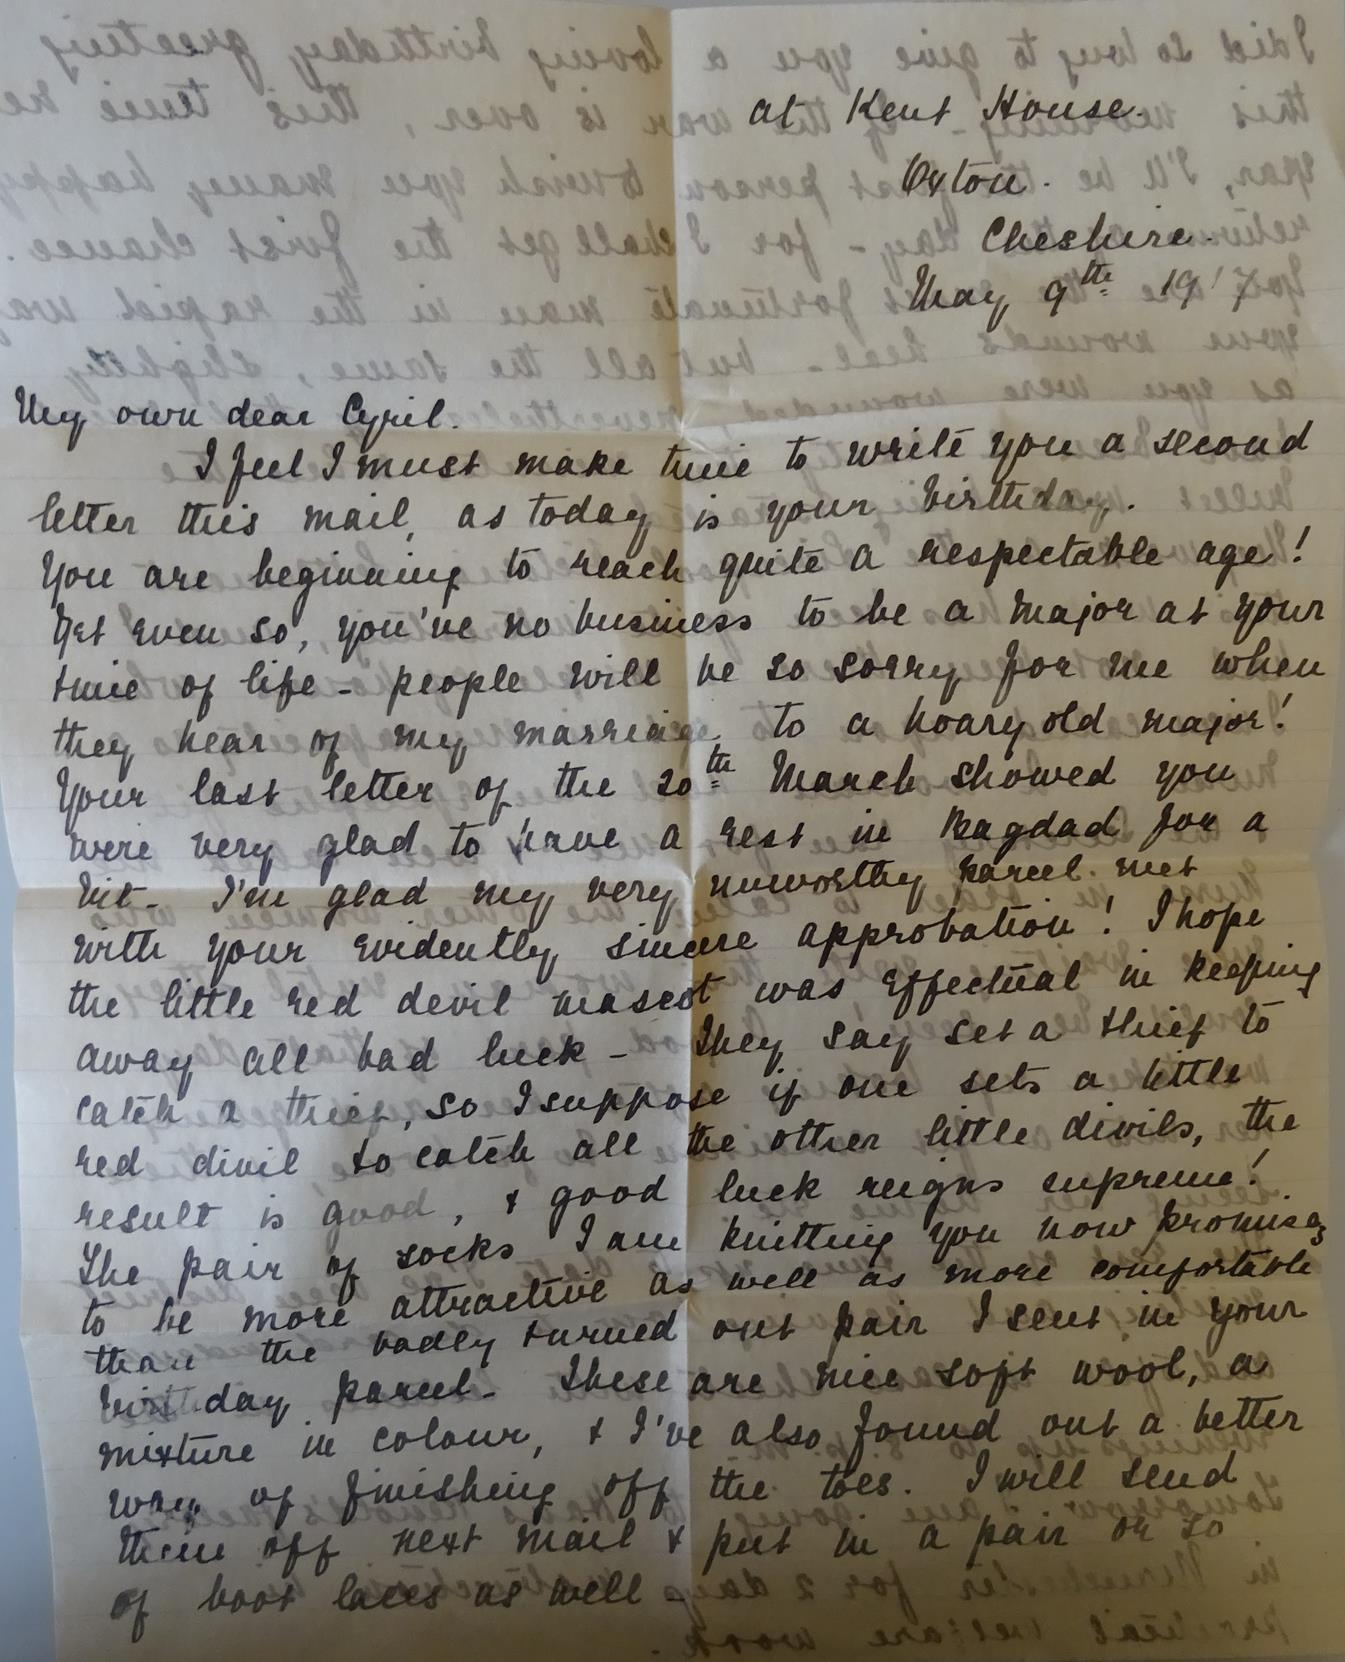 at Kent House.
Oxton.
Cheshire.
May 9th 1917
My own dear Cyril.
I feel I must make time to write you a second
letter this mail, as today is your birthday.
You are beginning to reach quite a respectable age!
Yet even so, you've no business to be a Major at your
time of life - people will be so sorry for me when
they hear of my marriage to a hoary old major!
Your last letter of the 20th March showed you
were very glad to have a rest in Bagdad for a
bit - I'm glad my very unworthy parcel met
with your evidently sincere approbation! I hope
the little red devil mascot was effectual in keeping
away all bad luck - They say set a thief to
catch a thief, so I suppose if one sets a little
red divil to catch all the other little divils, the
result is good, & good luck reigns supreme!
The pair of socks I am knitting you now promises
to be more attractive as well as more comfortable
than the badly turned out pair I sent in your
birthday parcel - These are nice soft wool, a
mixture in colour, & I've also found out a better
way of finishing off the toes. I will send
them off next mail & put in a pair or so
of boot laces as well -